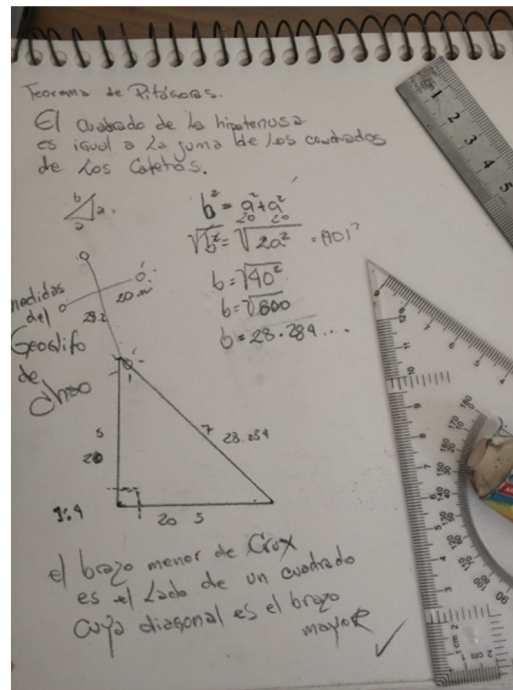 Teorema de Pitágoras.
El cuadrado de la hipotenusa
es igual a La suma de Los cuadrados
de Los Catetos.
b
a
a
b² = a² + a²
20 20
√b² = √2a²
b = √40²
b = √800
b = 28.284...
medidas
del
Geoglifo
de
Chao
20 m
28.2
5
20
7 28.284
20 5
el brazo menor de Crux
es el Lado de un cuadrado
cuya diagonal es el brazo
mayor